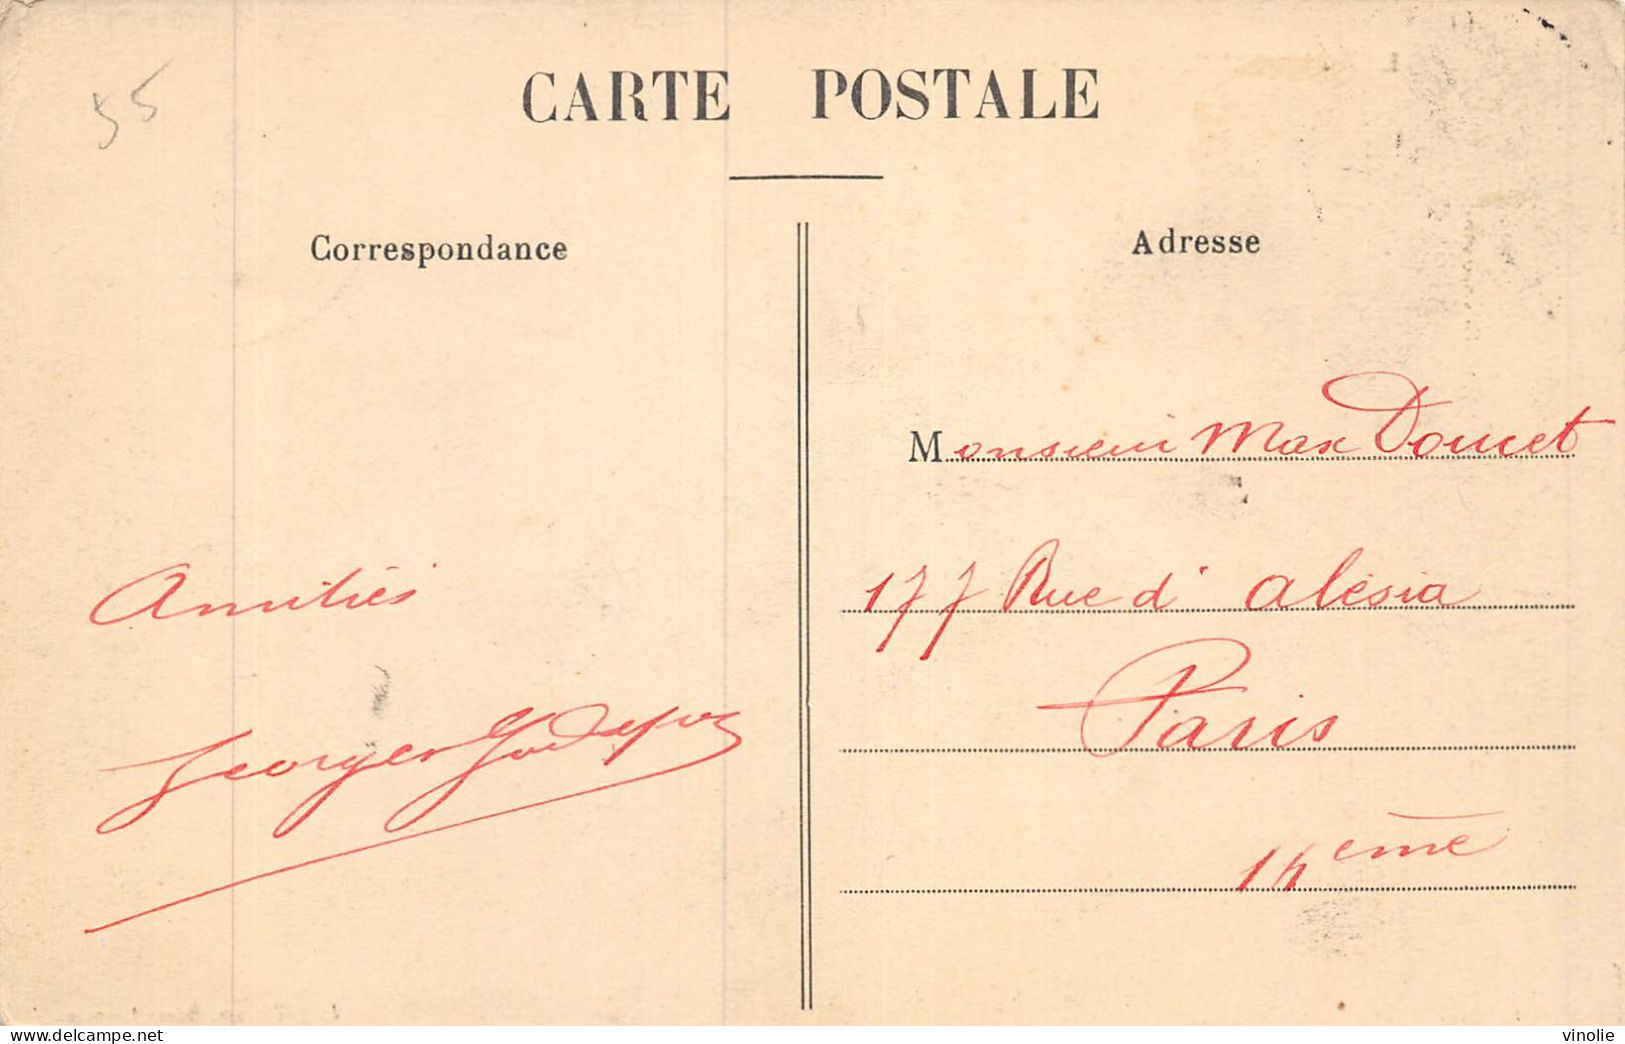 55
CARTE POSTALE
Correspondance
Adresse
Monsieur Max Doucet
177 Rue d'Alésia
Paris
14ème
Amitiés
Georges
delcampe.net
vinolie